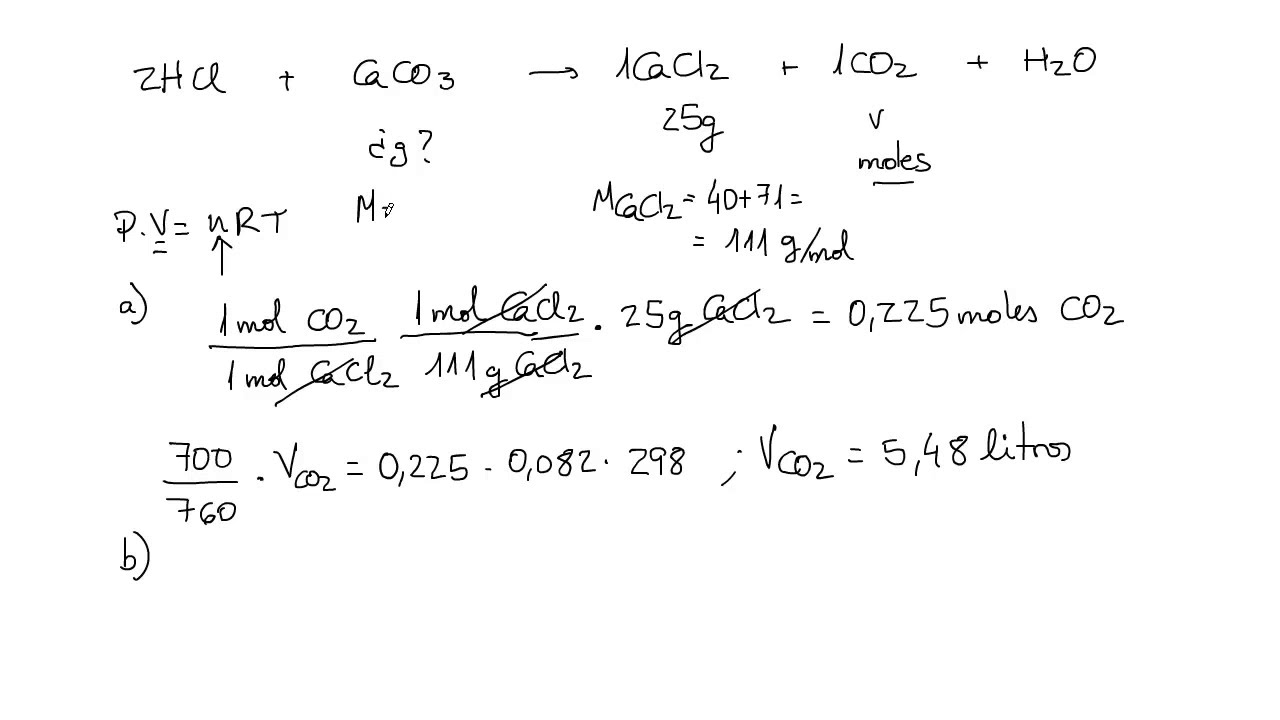 2HCl + CaCO3 → 1CaCl2 + 1CO2 + H2O
25g V
¿g? moles
P.V = nRT M MCaCl2 = 40+71 =
= 111 g/mol
a) 1mol CO2 / 1mol CaCl2 1mol CaCl2 / 111g CaCl2 . 25g CaCl2 = 0,225 moles CO2
700/760 . VCO2 = 0,225 . 0,082 . 298 ; VCO2 = 5,48 litros
b)